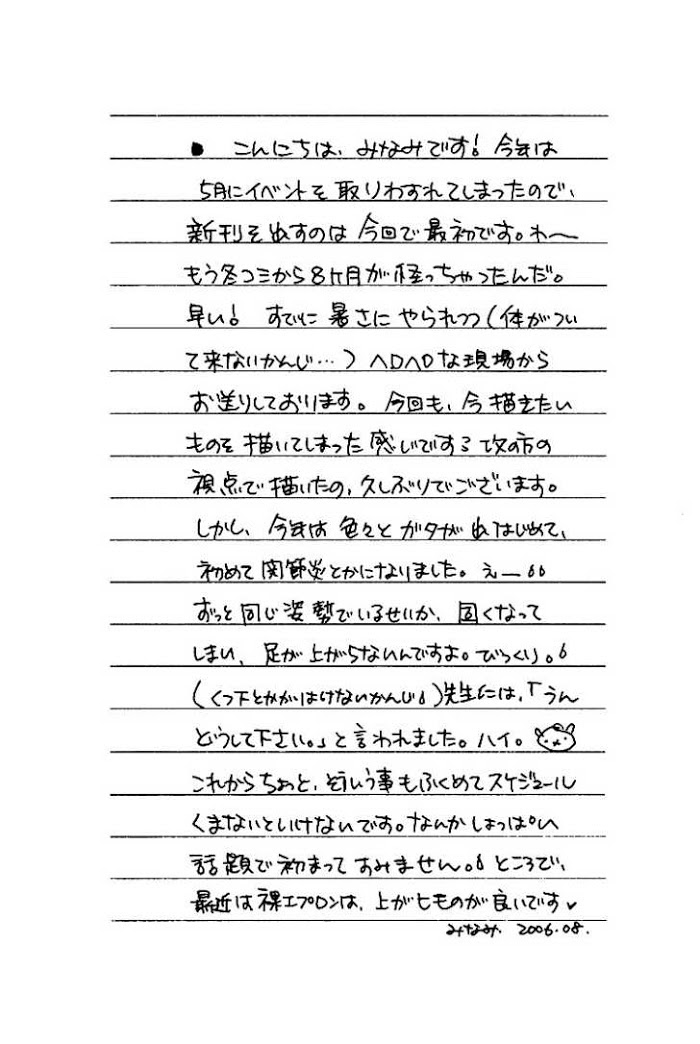 ● こんにちは、みなみです! 今年は
5月にイベントを取りわすれてしまったので、
新刊を出すのは今回で最初です。わ〜
もう冬コミから8ヶ月が経っちゃったんだ。
早い! すでに暑さにやられつつ(体がつい
て来ないかんじ…)ヘロヘロな現場から
お送りしております。今回も、今描きたい
ものを描いてしまった感じですろ攻の方の
視点で描いたの、久しぶりでございます。
しかし、今年は色々とガタが出はじめて、
初めて関節炎とかになりました。えー
ずっと同じ姿勢でいるせいか、固くなって
しまい、足が上がらないんですよ。びっくり。
(くつ下とかがはけないかんじ)先生には、「うん
どうして下さい。」と言われました。ハイ。
これからちょっと、そういう事もふくめてスケジュール
くまないといけないです。なんかしょっぱい
話題で初まってすみません。ところで、
最近は裸エプロンは、上がセものが良いです
みなみ. 2006.08.